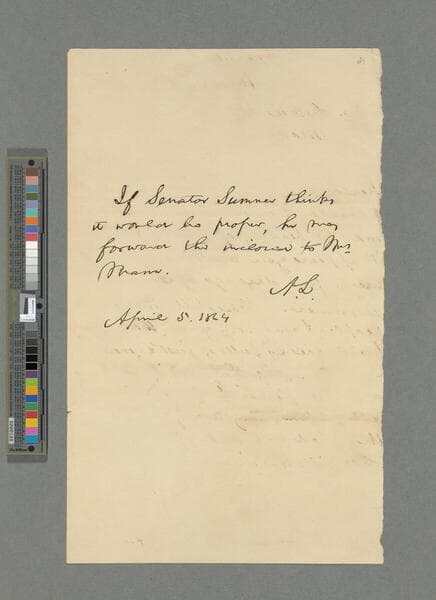 If Senator Sumner thinks
it would be proper, he may
forward the inclosed to Mrs
Mann.
A. L.
April 5. 1864